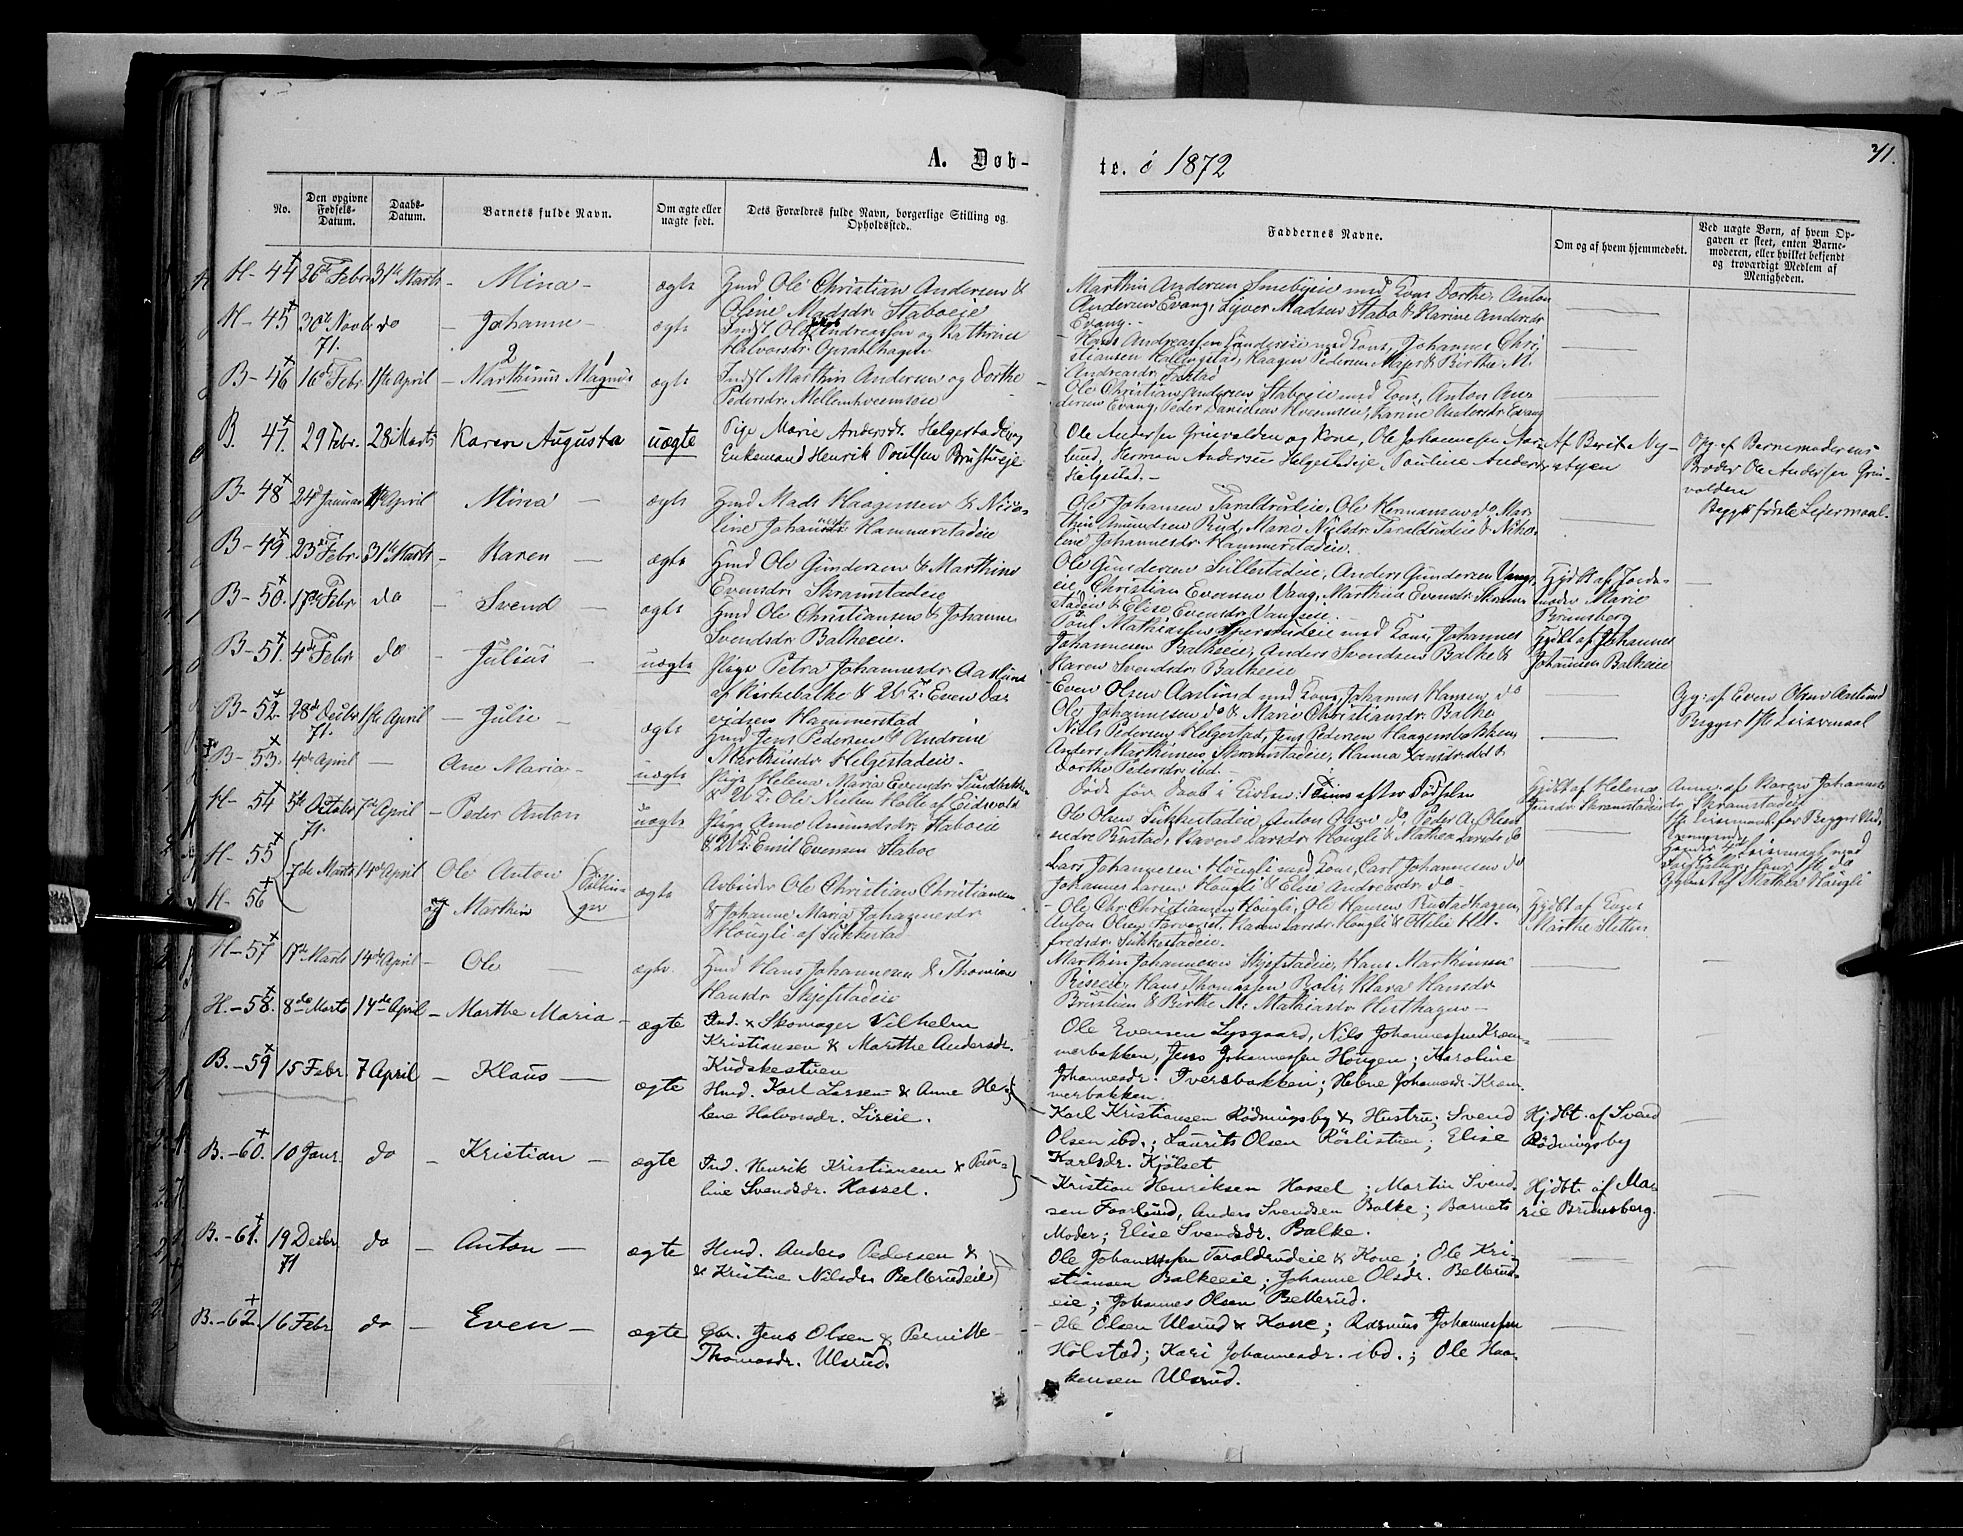 A. Døb-
te. i 1872
71.
No.
Den opgivne Fødsels-Datum.
Daabs-Datum.
Barnets fulde Navn.
Om ægte eller uægte født.
Dets Forældres fulde Navn, borgerlige Stilling og Opholdssted.
Faddernes Navne.
Om og af hvem hjemmedøbt.
Ved uægte Børn, af hvem Op-
gaven er skeet, enten Barne-
moderen, eller hvilket bekjendt
og troværdigt Medlem af
Menigheden.
H-44 26de Febr 31te Marts - Mina - ægte Hmd Ole Christian Andersen &
Oline Madsdr. Staboeie
Marthin Andersen Smebyeie med Kone Dorthe, Anton
Andersen Evang, Syver Madsen Stabo & Karine Andersdr
Evang.
H-45 30te Novb. 71. do - Johanne - ægte Indst Ole Andreassen og Kathrine
Halvorsdr. Opsahlhagen
Hans Andreassen Sundeie med Kone, Johannes Chri-
stiansen Hallingstad, Haagen Pedersen Majer & Birthe M.
Andreasdr.
B-46 16de Febr 1ste April - Marthinus Magnus ægte Indst Marthin Andersen og Dorthe
Pedersdr. Mellemhveemseie
Ole Christian Andersen Staboeie med Kone, Anton An-
dersen Evang, Peder Danielsen Hveemseie, Karine Andersdr Evang
B. 47. 29 Febr. 28 Marts Karen Augusta uægte Pige Marie Andersdr. Helgestadeie og
Enkemand Henrik Poulsen Brustueie
Ole Andersen Grinvolden og Kone, Ole Johannesen Aas-
lund, Herman Andersen Helgestadeie, Pauline Andersdr
Helgestad. -
Af Berit Ny-
styen
Opg. af Barnemoderens
Broder Ole Andersen Grin-
volden
Begges første Leiermaal.
B-48 24de Januar 1ste April Mina - ægte Hmd Mads Haagensen & Niko-
line Johannesdr. Hammerstadeie
Ole Johansen Taraldrudeie, Ole Hermansen do Mar-
thin Amundsen Rud, Marie Nilsdr. Taraldrudeie & Niko-
line Johannesdr. Hammerstadeie.
B-49 23de Febr. 31te Marts - Karen - ægte Hmd Ole Gundersen & Marthine
Evensdr. Skramstadeie
Ole Gundersen Sillestadeie, Anders Gundersen Vangs-
eie, Christian Evensen Vang, Marthia Evensdr. Skram-
stadeie & Elise Evensdr. Vangseie.
Hjdbt af Jorde-
moder Marie
Brunsberg
B-50. 17de Febr. do - Svend - ægte Hmd Ole Christiansen & Johanne
Svendsdr. Balkeeie.
Poul Mathiassen med Kone, Johannes
Johannesen Balkeeie, Anders Svendsen Balke &
Karen Svendsdr. Balkeeie
Hjdbt af Johannes
Johannesen Balkeeie
B-51. 4de Febr. do - Julius - uægte Pige Petra Johannesdr. Aaslund
af Kirkebalke & Even Da-
vidsen Hammerstad
Even Olsen Aaslund med Kone, Johannes Hansen do
Ole Johannesen do & Marie Christiansdr. Balke
Opg: af Even Olsen Aaslund
Begges 1ste Leiermaal
B-52 28de Decbr 71. 1ste April - Julie - ægte Hmd Jens Pedersen & Andrine
Marthinsdr. Helgestadeie.
Niels Pedersen Helgestad, Jens Pedersen Haagensbakken,
Anders Marthinsen Skramstadeie, Hanna
Dorthe Pedersdr. ibd.
B-53. 4de April - Ane Maria - uægte Pige Helena Maria Evensdr. Sundbakken
& Ole Nielsen Holte af Eidsvold
Døde før Daab i Kirken 1 Time efter Fødselen
Hjdbt af Helena
Skramstadeie
Anm: af Karen Johannes-
dr. Skramstadeie
H-54 5te Octobr 71. 7de April - Peder Anton uægte Pige Anne Amundsdr. Staboeie
& Emil Evensen Staboe
Ole Olsen Sukkestadeie, Anton Olsen do, Peder A. Olsen
Brustad, Karen Larsdr. Hougli & Mathea Larsdr. do
H-55 7de Marts 14de April Ole Anton
H-56 og Marthin Tvillin-
ger ægte Arbeider Ole Christian Christiansen
& Johanne Maria Johannesdr
Hougli af Sukkestad
Lars Johannesen Hougli med Kone, Carl Johannesen do
Johannes Larsen Hougli & Elise Andreasdr. do
- Ole Chr. Christiansen Hougli, Ole Hansen Rustadhagen,
Anton Olsen, Karen Larsdr. Hougli & Helle Hel-
fredsdr. Sukkestadeie.
Hjdbt af Kone
Marthe Sletten
H-57 17de Marts 14de April - Ole - ægte. Hmd Hans Johannesen & Thomine
Hansdr. Skjefstadeie
Marthin Johannesen Skjefstadeie, Hans Marthinsen
Riseeie, Hans Thomassen Roli, Klara Hansdr
Brustuen & Birthe M. Mathiasdr. Herthagen -
H.-58. 8de Marts 14de April - Marthe Maria - ægte Ind. & Skomager Vilhelm
Kristiansen & Marthe Andersdr.
Kudskestuen
Ole Evensen Lysgaard, Nils Johannessen Kram-
merbakken, Jens Johannessen Hougen; Karoline
Johannesdr. Iversbakken; Helene Johannesdr. Kram-
merbakken.
B.-59 15 Febr. 7 April - Klaus - ægte Hmd. Karl Larsen & Anne He-
lene Halvorsdr. Lieie.
Karl Kristiansen Rødningsby & Hustru; Svend
Olsen ibd.; Laurits Olsen Røslistuen; Elise
Karlsdr. Kjølset
Hjdbt. af Svend
Rødningsby
B.-60. 10 Janr. do - Kristian - ægte Ind. Henrik Kristiansen & Pau-
line Svendsdr. Hassel.
Kristian Henriksen Hassel; Martin Svend-
sen Faarlund, Anders Svendsen Balke; Barnets
Moder; Elise Svendsdr. Balke.
Hjdbt. af Ma-
rie Brunsberg.
B.-61. 19 Decbr. 71 do - Anton - ægte Hmd. Anders Pedersen &
& Kristine Nilsdr. Bellerudeie
Ole Johannessen Taraldrudeie & Kone; Ole Kri-
stiansen Balkeeie; Johanne Olsdr. Bellerud-
eie; Johannes Olsen Bellerud.
B.-62. 16 Febr do - Even - ægte Gbr. Jens Olsen & Pernille
Thomasdr. Ulsrud.
Ole Olsen Ulsrud & Kone; Rasmus Johannessen
Holstad; Kari Johannesdr. ibd.; Ole Haa-
kensen Ulsrud.